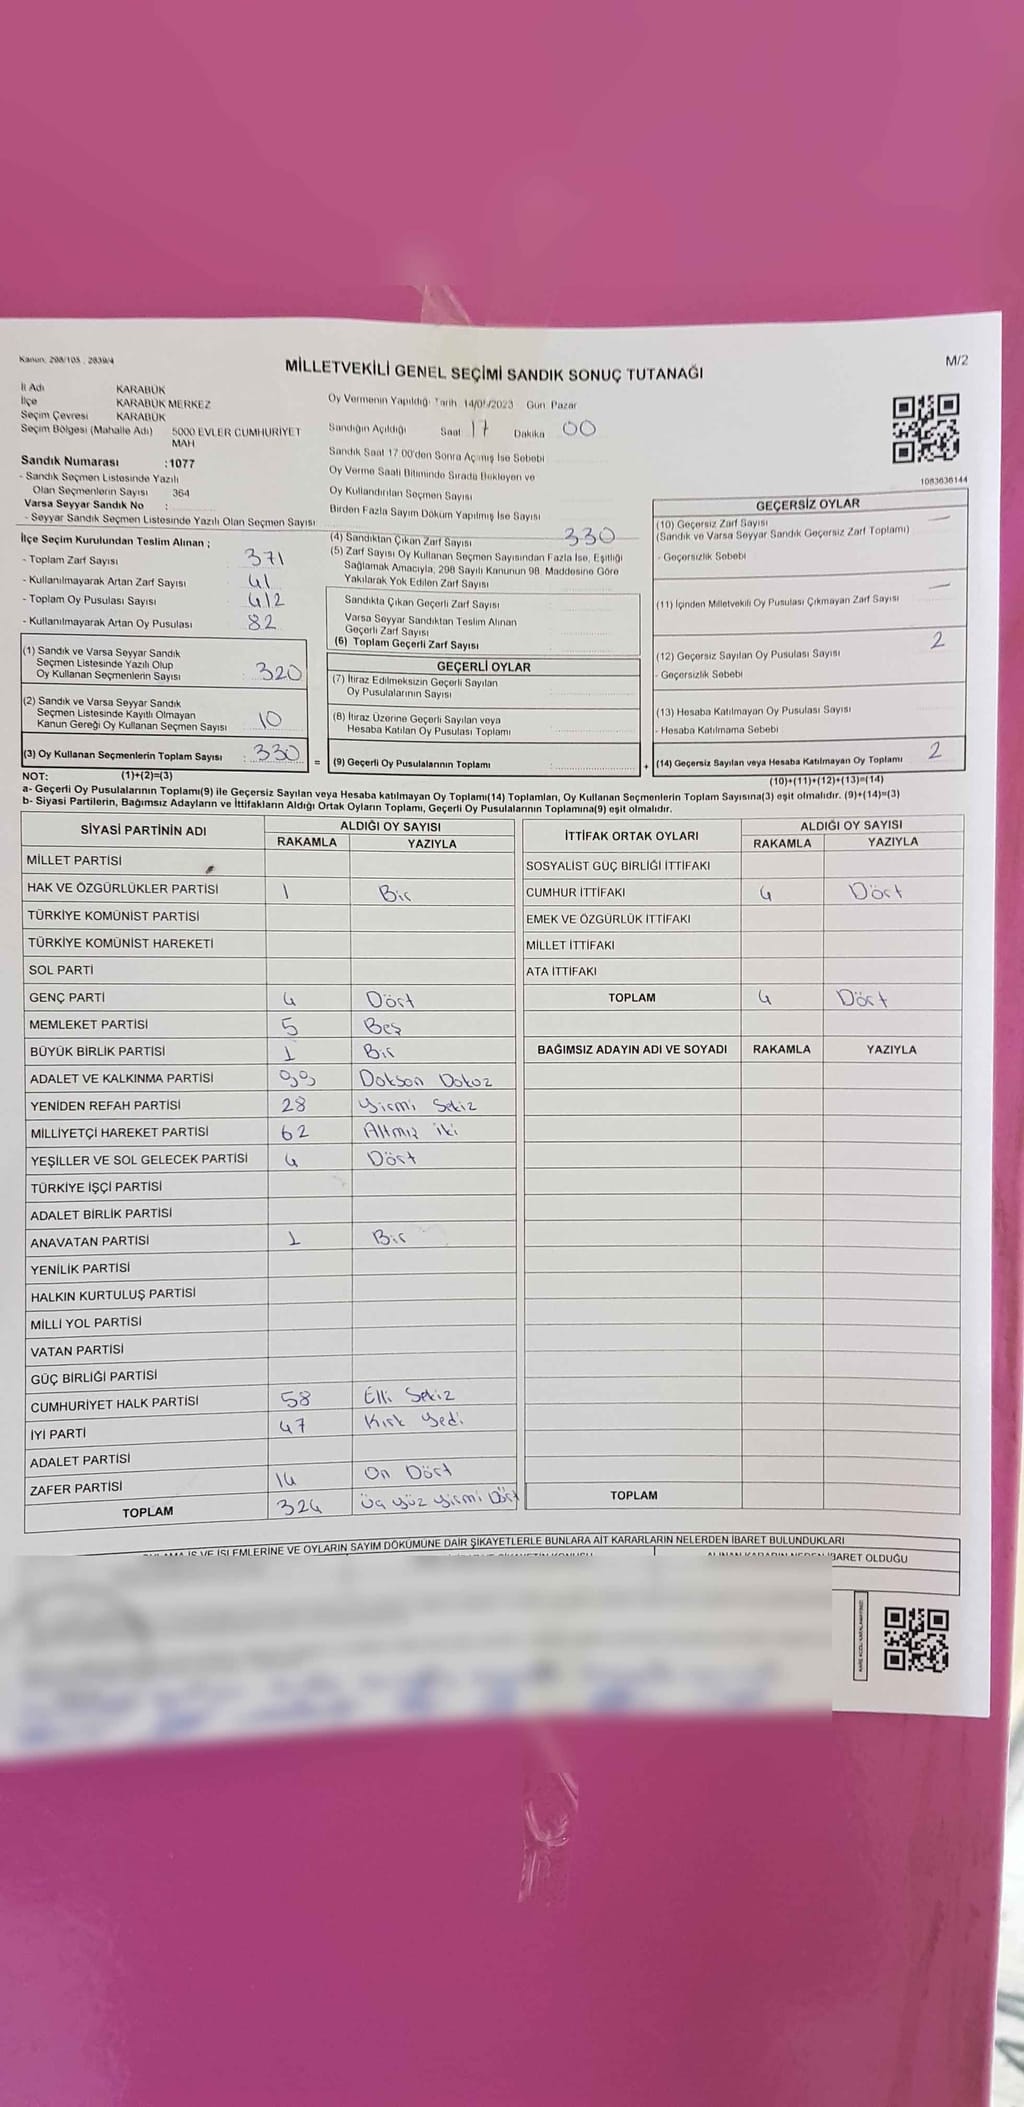 Kanun: 298/105 , 2839/4
MİLLETVEKİLİ GENEL SEÇİMİ SANDIK SONUÇ TUTANAĞI
M/2
İl Adı KARABÜK
İlçe KARABÜK MERKEZ
Seçim Çevresi KARABÜK
Seçim Bölgesi (Mahalle Adı) 5000 EVLER CUMHURİYET
MAH
Sandık Numarası :1077
- Sandık Seçmen Listesinde Yazılı
Olan Seçmenlerin Sayısı 364
Varsa Seyyar Sandık No :
- Seyyar Sandık Seçmen Listesinde Yazılı Olan Seçmen Sayısı
Oy Vermenin Yapıldığı Tarih 14/05/2023 Gün Pazar
Sandığın Açıldığı Saat 17 Dakika 00
Sandık Saat 17.00'den Sonra Açılmış İse Sebebi
Oy Verme Saati Bitiminde Sırada Bekleyen ve
Oy Kullandırılan Seçmen Sayısı
Birden Fazla Sayım Döküm Yapılmış İse Sayısı
1083636144
İlçe Seçim Kurulundan Teslim Alınan ;
- Toplam Zarf Sayısı 371
- Kullanılmayarak Artan Zarf Sayısı 41
- Toplam Oy Pusulası Sayısı 412
- Kullanılmayarak Artan Oy Pusulası 82
(1) Sandık ve Varsa Seyyar Sandık
Seçmen Listesinde Yazılı Olup
Oy Kullanan Seçmenlerin Sayısı : 320
(2) Sandık ve Varsa Seyyar Sandık
Seçmen Listesinde Kayıtlı Olmayan
Kanun Gereği Oy Kullanan Seçmen Sayısı : 10
(3) Oy Kullanan Seçmenlerin Toplam Sayısı : 330
(4) Sandıktan Çıkan Zarf Sayısı 330
(5) Zarf Sayısı Oy Kullanan Seçmen Sayısından Fazla İse, Eşitliği
Sağlamak Amacıyla, 298 Sayılı Kanunun 98. Maddesine Göre
Yakılarak Yok Edilen Zarf Sayısı
Sandıkta Çıkan Geçerli Zarf Sayısı
Varsa Seyyar Sandıktan Teslim Alınan
Geçerli Zarf Sayısı
(6) Toplam Geçerli Zarf Sayısı
GEÇERLİ OYLAR
(7) İtiraz Edilmeksizin Geçerli Sayılan
Oy Pusulalarının Sayısı
(8) İtiraz Üzerine Geçerli Sayılan veya
Hesaba Katılan Oy Pusulası Toplamı
= (9) Geçerli Oy Pusulalarının Toplamı : +
GEÇERSİZ OYLAR
(10) Geçersiz Zarf Sayısı —
(Sandık ve Varsa Seyyar Sandık Geçersiz Zarf Toplamı)
- Geçersizlik Sebebi
(11) İçinden Milletvekili Oy Pusulası Çıkmayan Zarf Sayısı —
(12) Geçersiz Sayılan Oy Pusulası Sayısı 2
- Geçersizlik Sebebi
(13) Hesaba Katılmayan Oy Pusulası Sayısı
- Hesaba Katılmama Sebebi
(14) Geçersiz Sayılan veya Hesaba Katılmayan Oy Toplamı 2
NOT: (1)+(2)=(3) (10)+(11)+(12)+(13)=(14)
a- Geçerli Oy Pusulalarının Toplamı(9) ile Geçersiz Sayılan veya Hesaba katılmayan Oy Toplamı(14) Toplamları, Oy Kullanan Seçmenlerin Toplam Sayısına(3) eşit olmalıdır. (9)+(14)=(3)
b- Siyasi Partilerin, Bağımsız Adayların ve İttifakların Aldığı Ortak Oyların Toplamı, Geçerli Oy Pusulalarının Toplamına(9) eşit olmalıdır.
SİYASİ PARTİNİN ADI ALDIĞI OY SAYISI
RAKAMLA YAZIYLA
MİLLET PARTİSİ
HAK VE ÖZGÜRLÜKLER PARTİSİ 1 Bir
TÜRKİYE KOMÜNİST PARTİSİ
TÜRKİYE KOMÜNİST HAREKETİ
SOL PARTİ
GENÇ PARTİ 4 Dört
MEMLEKET PARTİSİ 5 Beş
BÜYÜK BİRLİK PARTİSİ 1 Bir
ADALET VE KALKINMA PARTİSİ 99 Doksan Dokuz
YENİDEN REFAH PARTİSİ 28 Yirmi Sekiz
MİLLİYETÇİ HAREKET PARTİSİ 62 Altmış iki
YEŞİLLER VE SOL GELECEK PARTİSİ 4 Dört
TÜRKİYE İŞÇİ PARTİSİ
ADALET BİRLİK PARTİSİ
ANAVATAN PARTİSİ 1 Bir
YENİLİK PARTİSİ
HALKIN KURTULUŞ PARTİSİ
MİLLİ YOL PARTİSİ
VATAN PARTİSİ
GÜÇ BİRLİĞİ PARTİSİ
CUMHURİYET HALK PARTİSİ 58 Elli Sekiz
İYİ PARTİ 47 Kırk Yedi
ADALET PARTİSİ
ZAFER PARTİSİ 14 On Dört
TOPLAM 324 Üç yüz yirmi Dört
İTTİFAK ORTAK OYLARI ALDIĞI OY SAYISI
RAKAMLA YAZIYLA
SOSYALİST GÜÇ BİRLİĞİ İTTİFAKI
CUMHUR İTTİFAKI 4 Dört
EMEK VE ÖZGÜRLÜK İTTİFAKI
MİLLET İTTİFAKI
ATA İTTİFAKI
TOPLAM 4 Dört
BAĞIMSIZ ADAYIN ADI VE SOYADI RAKAMLA YAZIYLA
TOPLAM
VE İŞLEMLERİNE VE OYLARIN SAYIM DÖKÜMÜNE DAİR ŞİKAYETLERLE BUNLARA AİT KARARLARIN NELERDEN İBARET BULUNDUKLARI
ALINAN KARARIN NEDEN İBARET OLDUĞU